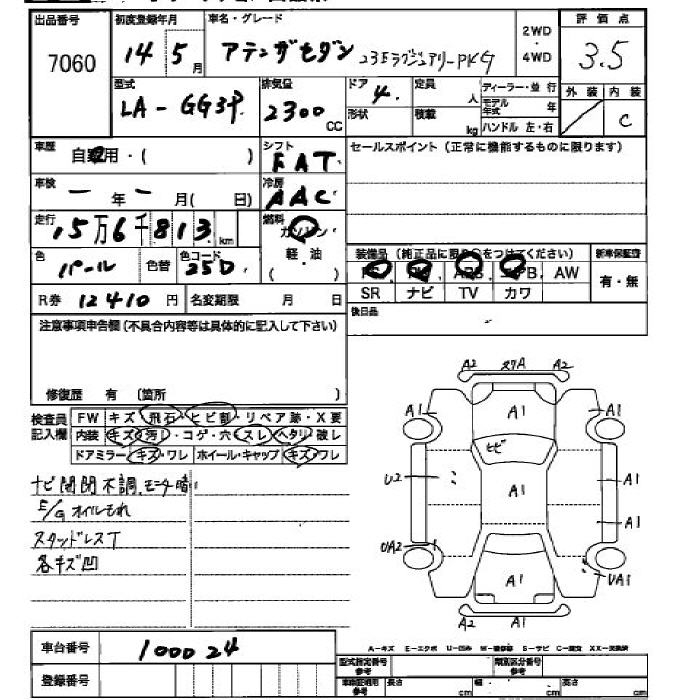 出品番号 初度登録年月 車名・グレード 2WD・4WD 評価点
7060 14 5月 アテンザセダン 23EラグジュアリーPKG 3.5
型式 排気量 ドア 定員 人 ディーラー・並行 外装 内装
LA-GG3P 2300CC 4. 形状 積載 kg モデル年式 年 ハンドル 左・右 C
車歴 自家用・( ) シフト FAT セールスポイント(正常に機能するものに限ります)
車検 ー年ー月( 日) 冷房 AAC
走行 15万6千813km 燃料 ガソリン・軽・油( )
色 パール 色替 色コード 25D 装備品(純正品に限り○をつけてください) 新車保証書
PS PW ABS エアB AW 有・無
R券 12410円 名変期限 月 日 SR ナビ TV カワ
注意事項申告欄(不具合内容等は具体的に記入して下さい) 後日品
修復歴 有(箇所 )
検査員記入欄 FW キズ・飛石・ヒビ割・リペア跡・X要
内装 キズ・汚レ・コゲ・穴・スレ・ヘタリ・破レ
ドアミラー キズ・ワレ ホイール・キャップ キズ・ワレ
ナビ開閉不調.モニター暗
E/Gオイルもれ
スタッドレスT
各キズ凹
A2 スリA A2
A1 A1 A1
ヒビ
U2 A1 A1
A1
UA2 UA1
A1
A2 A1
A-キズ E-エクボ U-凹み W-補修跡 S-サビ C-腐食 XX-交換済
車台番号 100024
型式指定番号 類別区分番号
登録番号 車検証明用参考 長さ cm 幅 cm 高さ cm